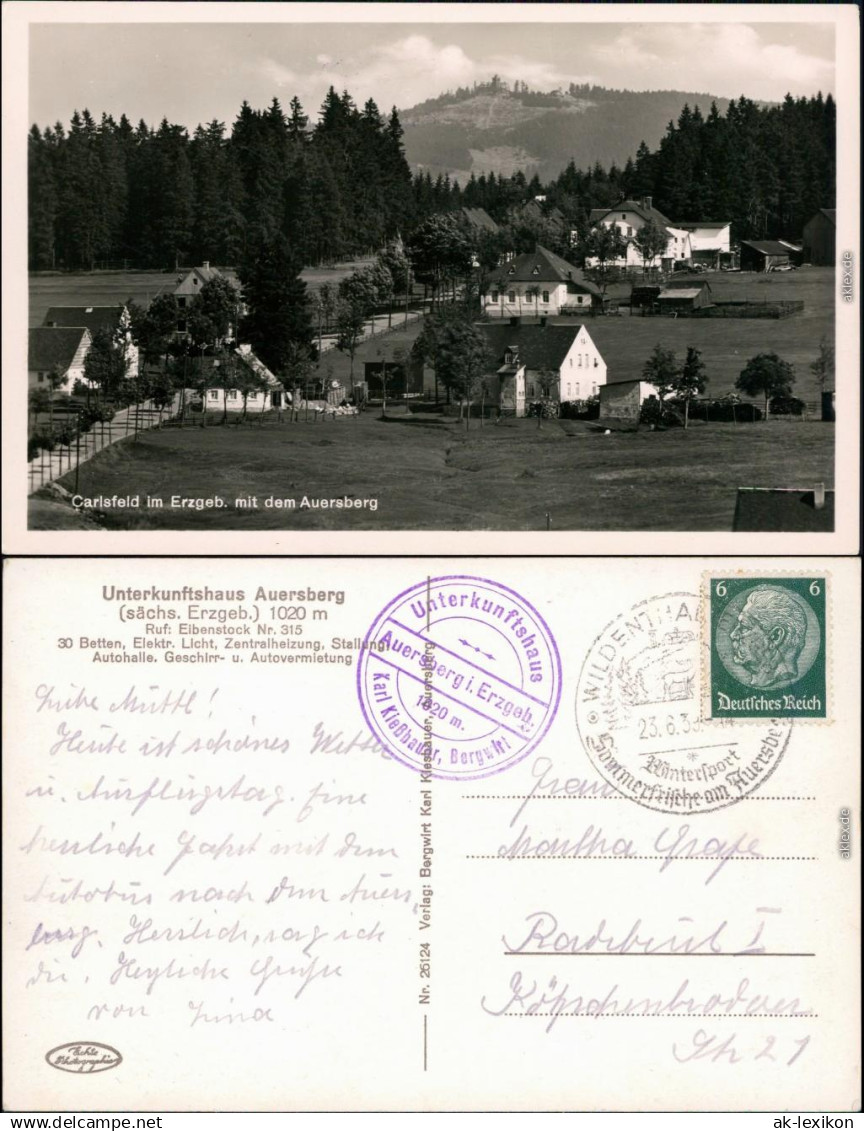 Carlsfeld im Erzgeb. mit dem Auersberg
Unterkunftshaus Auersberg
(sächs. Erzgeb.) 1020 m
Ruf: Eibenstock Nr. 315
30 Betten, Elektr. Licht, Zentralheizung, Stallung,
Autohalle. Geschirr- u. Autovermietung
Liebe Mutti!
Heute ist schönes Wetter
u. Ausflugstag. Eine
herrliche Fahrt mit dem
Autobus nach dem Auers-
berg. Herrlich, sag ich
dir. Herzliche Grüße
von
Echte
Photographie
Nr. 26124 Verlag: Bergwirt Karl Kiesbauer, Auersberg
Unterkunftshaus
Auersberg i. Erzgeb.
1020 m.
Karl Kießbauer, Bergwirt
WILDENTHAL
23.6.39
Wintersport
Sommerfrische am Auersberg
6 6
Deutsches Reich
Frau
Martha Grafe
Radebeul I
Köpschenbrodaer
Str 21
akpool.de
akpool.de